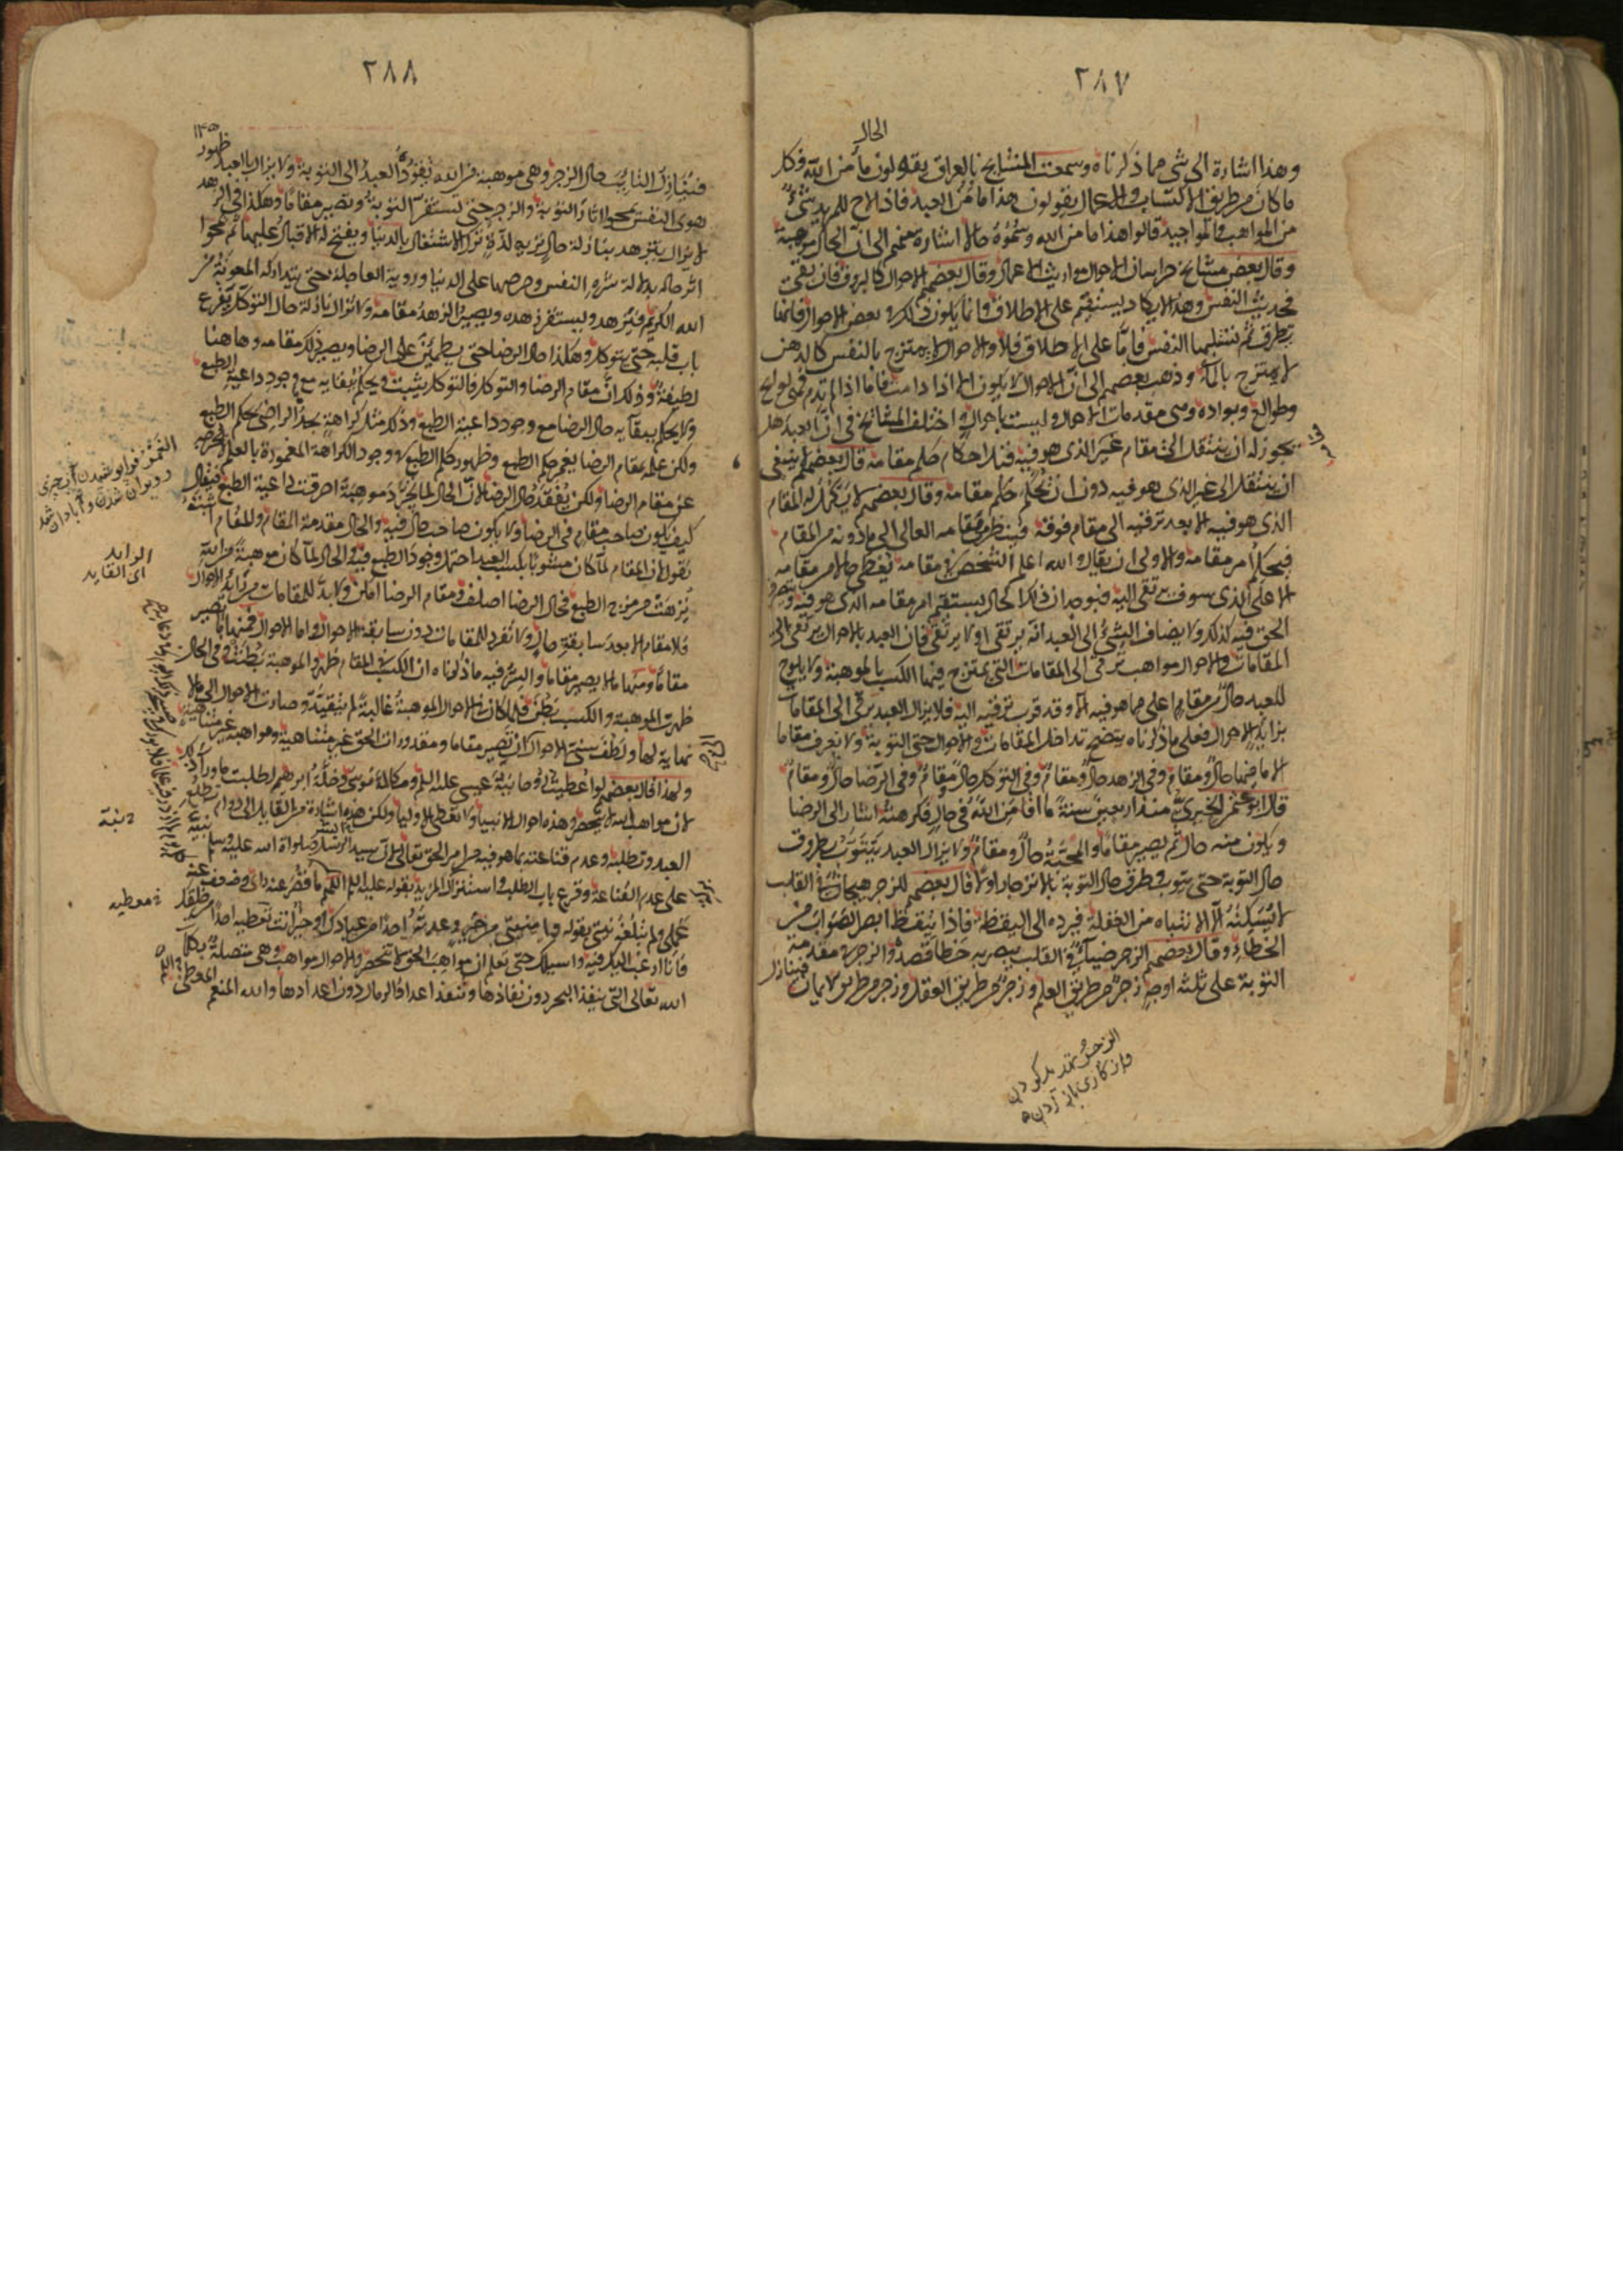 ٢٨٧
الحال
وهذا اشارة الى شى مما ذكرناه وسمعت المشايخ بالعراق يقولون ما من الله فكل
ما كان من طريق الاكتساب والاعمال يقولون هذا ما من العبد فاذا لاح للمريد شئ
من المواهب والمواجيد قالوا هذا ما من الله وسموه حالا اشارة منهم الى ان الحال موهبة
وقال بعض مشايخ خراسان الاحوال مواريث الاعمال وقال بعضهم الاحوال كالبروق فان بقى
فحديث النفس وهذا لا يكاد يستقيم على الاطلاق وانما يكون ذلك فى بعض الاحوال فانها
تطرق ثم تستلبها النفس فاما على الاطلاق فلا والاحوال لا يمتزج بالنفس كالدهن
لا يمتزج بالماء وذهب بعضهم الى ان الاحوال لا يكون الا اذا دامت فاما اذا لم تدم فهى لوايح
وطوالع وبواده وهى مقدمات الاحوال وليست باحوال واختلف المشائخ فى ان العبد هل
يجوز له ان ينتقل الى مقام غير الذى هو فيه قبل احكام حكم مقامه قال بعضهم لا ينبغى
ان ينتقل الى غير الذى هو فيه دون ان يحكم حكم مقامه وقال بعضهم لا يكمل له المقام
الذى هو فيه الا بعد ترقيه الى مقام فوقه فينظر من مقامه العالى الى ما دونه من المقام
فيحكم امر مقامه والاولى ان يقال والله اعلم الشخص فى مقامه يعطى حالا من مقامه
الاعلى الذى سوف يرتقى اليه فبوجدان ذلك الحال يستقيم امر مقامه الذى هو فيه ويتصرف
الحق فيه كذلك ولا يضاف الشئ الى العبد انه يرتقى او لا يرتقى فان العبد بالاحوال يرتقى الى
المقامات والاحوال مواهب ترقى الى المقامات التى يمتزج فيها الكسب بالموهبة ولا يلوح
للعبد حال من مقام اعلى مما هو فيه الا وقد قرب ترقيه اليه فلا يزال العبد يرقى الى المقامات
بزايد الاحوال فعلى ما ذكرناه يتضح تداخل المقامات والاحوال حتى التوبة ولا يعرف مقاما
الا ما فيها حال ومقام وفى الزهد حال ومقام وفى التوكل حال ومقام وفى الرضا حال ومقام
قال ابو عثمن الحيرى منذ اربعين سنة ما اقامنى الله فى حال فكرهته اشار الى الرضا
ويكون منه حال ثم يصير مقاما والمحبة حال ومقام ولا يزال العبد يتتوب بطروق
حال التوبة حتى يتوب وطروق حال التوبة بالانزجار اولا قال بعضهم الزجر هيجان فى القلب
لا يسكنه الا الانتباه من الغفلة فيرده الى اليقظة فاذا تيقظ ابصر الصواب من
الخطاء وقال بعضهم الزجر ضياء فى القلب يبصر به خطا قصده والزجر فى مقدمة
التوبة على ثلثه اوجه زجر من طريق العلم وزجر من طريق العقل وزجر من طريق الايمان
فينازل
٢٨٨
فينازل التايب حال الزجر وهى موهبة من الله يقوده العبد الى التوبة ولا يزال بالعبد ظهور
هوى النفس يمحو اثار التوبة والزجر حتى تستقر التوبة وتصير مقاما وهكذا فى الزهد
لا يزال يتزهد بنازلة حال تريه لذة ترك الاشتغال بالدنيا ويقبح له الاقبال عليها ثم تمحوا
اثر حاله بدلالة شره النفس وحرصها على الدنيا وروية العاجلة حتى يتداركه المعونة من
الله الكريم فيتزهد ويستقر زهده ويصير الزهد مقامه ولا تزال نازلة حال التوكل يقرع
باب قلبه حتى يتوكل وهكذا حال الرضا حتى يطمئن على الرضا ويصير ذلك مقامه وها هنا
لطيفة وذلك ان مقام الرضا والتوكل يثبت ويحكم ببقايه مع وجود داعية الطبع
ولا يحكم ببقآيه حال الرضا مع وجود داعية الطبع وذلك مثل كراهة يجدها الراضى بحكم الطبع
ولكن علمه بمقام الرضا يغمر حكم الطبع وظهور حكم الطبع فى وجود الكراهة المغمورة بالعلم لا يخرجه
عن مقام الرضا ولكن يفقد حال الرضا لان الحال لما تجرد موهبة احرقت داعية الطبع فيقال
كيف يكون صاحب مقام فى الرضا ولا يكون صاحب حال فيه والحال مقدمة المقام والمقام اثبت
نقول لان المقام لما كان مشوبا بكسب العبد احتمل وجود الطبع فيه والحال لما كان موهبة من الله
نزهت من مزج الطبع فحال الرضا اصلف ومقام الرضا امكن ولا بد للمقامات من زايد الاحوال
فلا مقام الا بعد سابقة حال ولا تفرد للمقامات دون سابقة الاحوال واما الاحوال فمنها ما يصير
مقاما ومنها ما لا يصير مقاما والسر فيه ما ذكرناه ان الكسب فى المقام ظهر والموهبة بطنت وفى الحال
ظهرت الموهبة والكسب بطن فلما كان فى الاحوال الموهبة غالبة لم يتقيد وصارت الاحوال الى ما لا
نهاية لها ولطف سنى الاحوال ان يصير مقاما ومقدورات الحق غير متناهية ومواهبه غير متناهية
ولهذا قال بعضهم لو اعطيت روحانية عيسى عليه السلم ومكالمة موسى وخلة ابرهيم لطلبت ما وراء ذلك
لان مواهب الله لا تنحصر وهذه احوال الانبيا ولا تعطى الاوليا ولكن هذه اشارة من القايل الى دوام تطلع
العبد وتطلبه وعدم قناعته بما هو فيه من امر الحق تعالى لان سيد الرسل صلواة الله عليه وسلم نبه
على عدم القناعة وقرع باب الطلب واستنزال المزيد بقوله عليه السلم اللهم ما قصر عنه راى وضعف عنه
عملى ولم تبلغه نيتى بقوله وامنيتى من خير وعدته احدا من عبادك او خير انت تعطيه احدا من خلقك
فانا ارغب اليك فيه واسيلك حتى تعلم ان مواهب الحق لا تنحصر والاحوال مواهب وهى متصلة بكلمات
الله تعالى التى ينفد البحر دون نفادها وتنفد اعداد الرمال دون اعدادها والله المنعم المعطى
الزايد
اى القايد
نبية
معطيه
الزجر